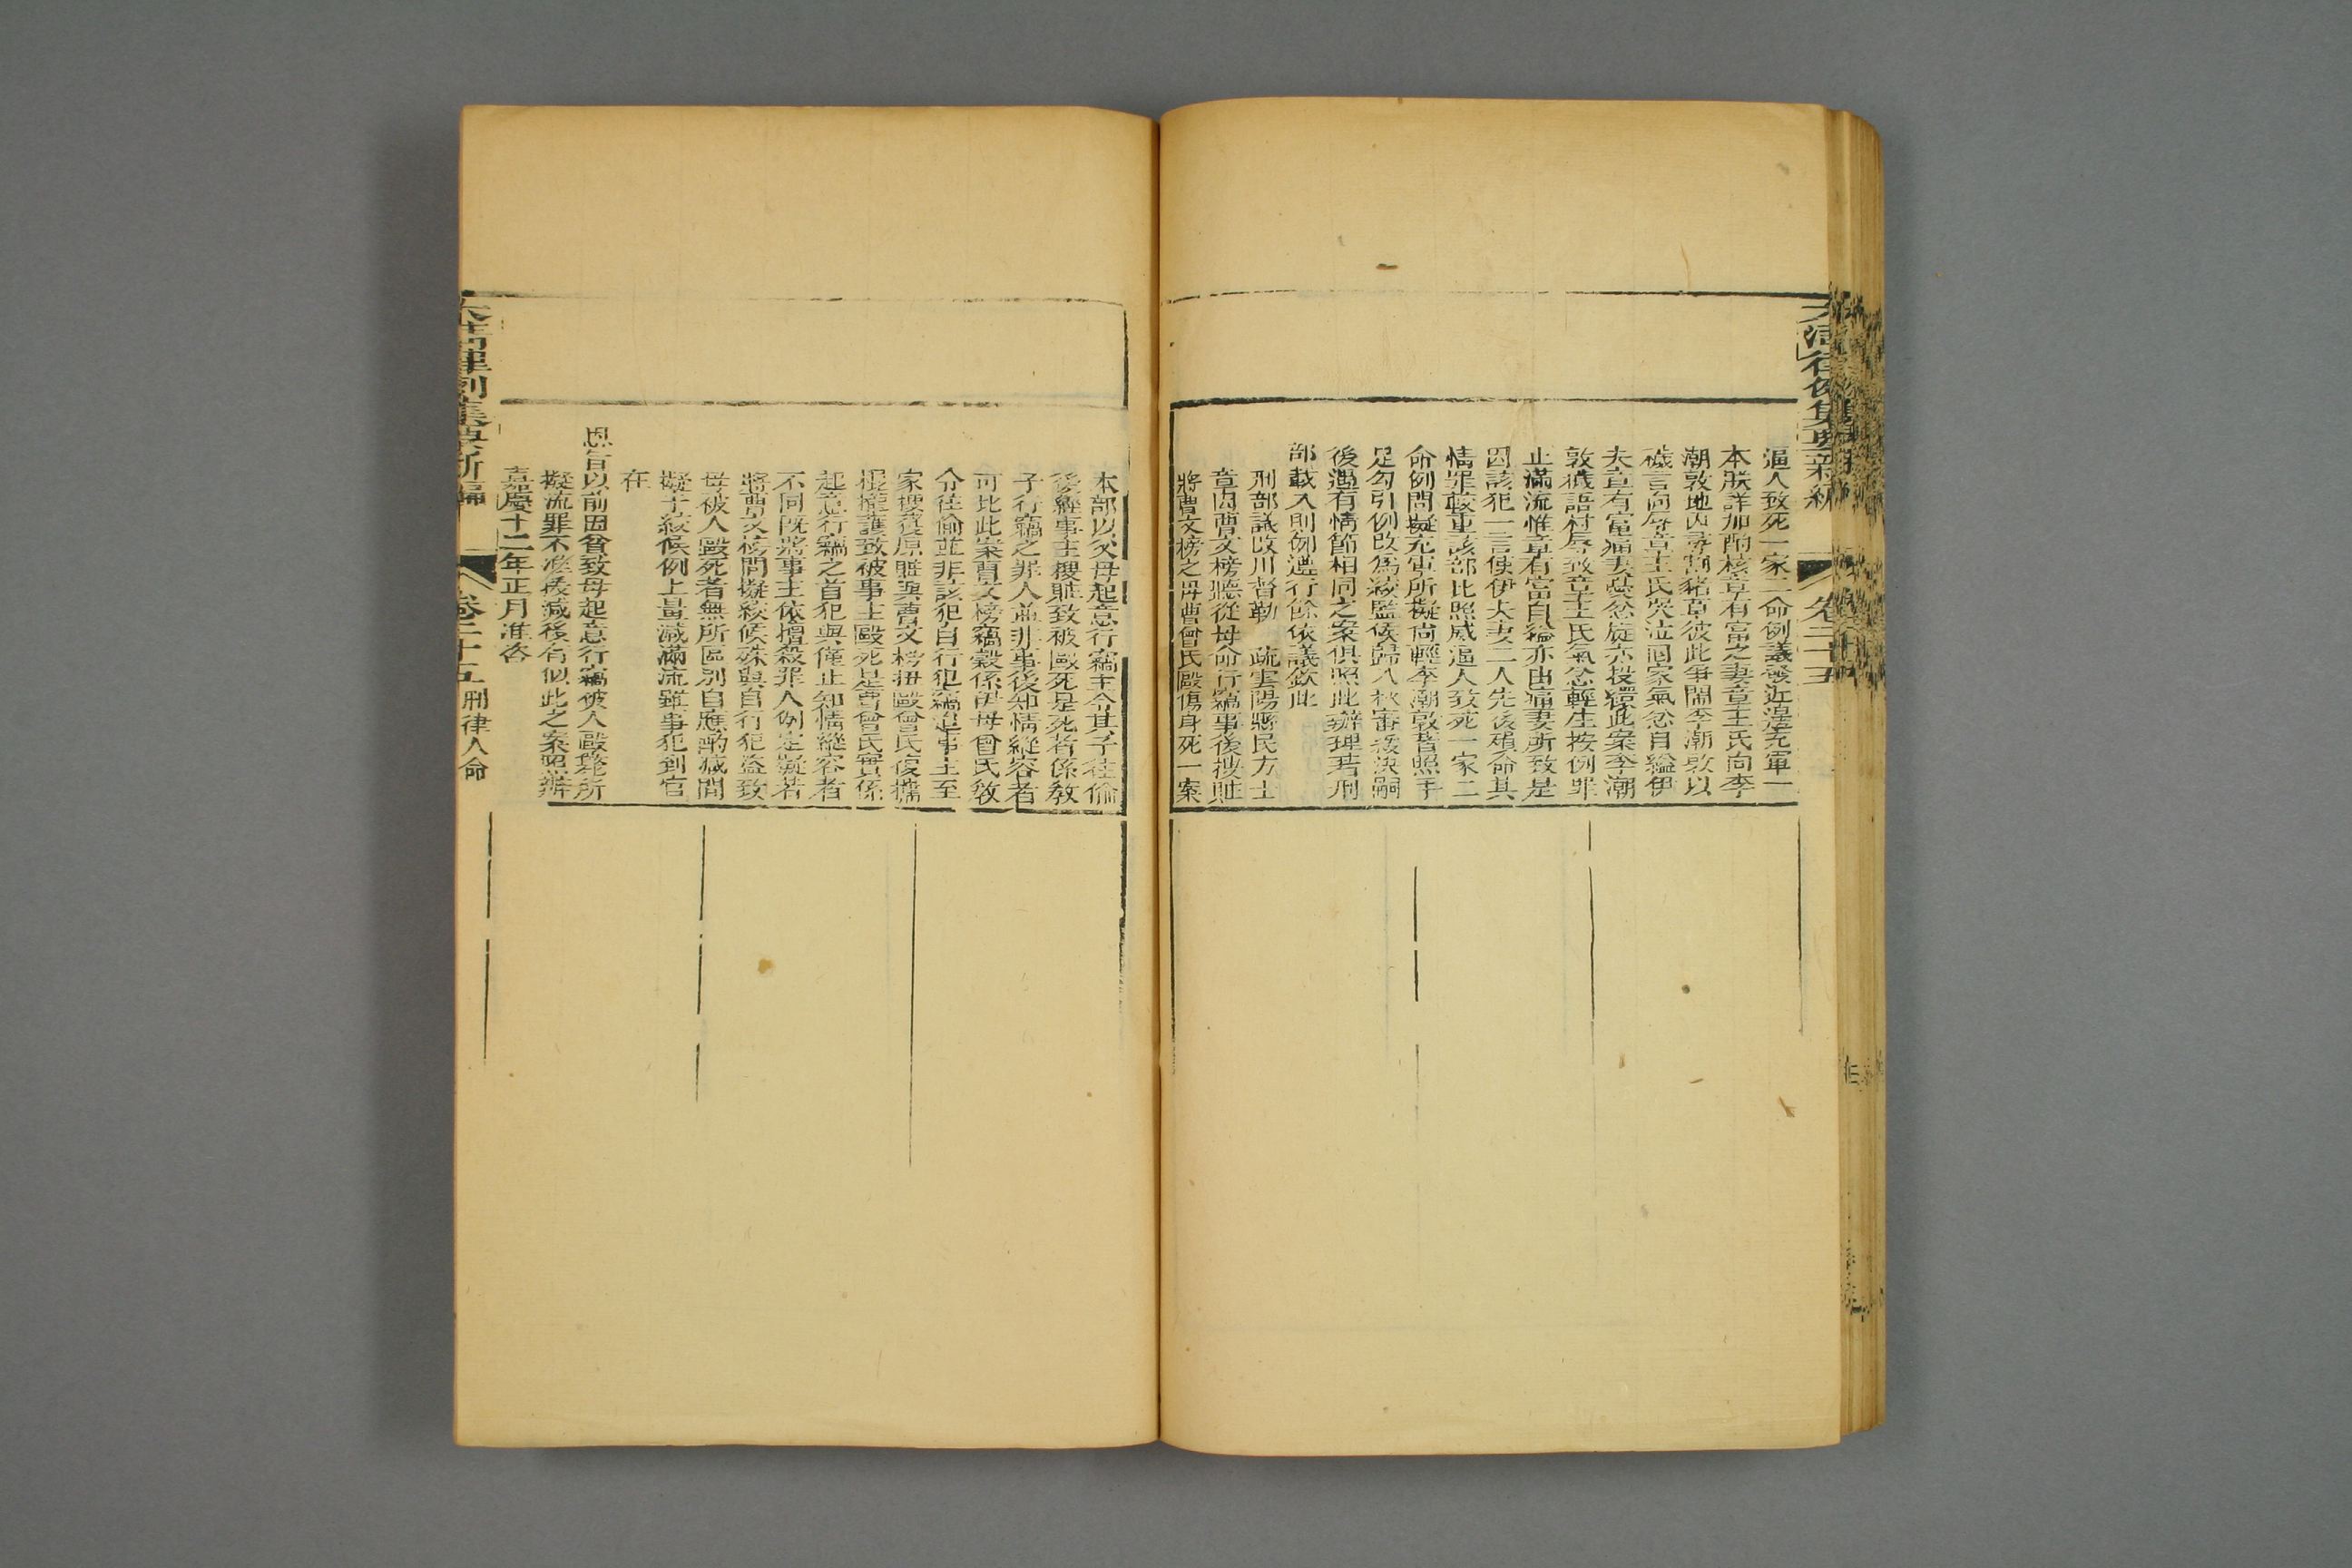 大清律例集要新編
卷二十五
逼人致死一家二命例議發近邊充軍一
本朕詳加酌核章有富之妻章王氏向李
潮敦地內尋割豬草彼此爭鬧李潮敦以
穢言向辱章王氏哭泣回家氣忿自縊伊
夫章有富痛妻忿旋亦投繯此案李潮
敦穢語村辱致章王氏氣忿輕生按例罪
止滿流惟章有富自縊亦由痛妻所致是
因該犯一言使伊夫妻二人先後殞命其
情罪較重該部比照威逼人致死一家二
命例問擬充軍所擬尚輕李潮敦著照手
足勾引例改為絞監候歸入秋審核決嗣
後遇有情節相同之案俱照此辦理著刑
部載入則例遵行餘依議欽此
刑部議改川督勒 疏雲陽縣民方士
章因曹文榜聽從母命行竊事後搜贓
將曹文榜之母曹曾氏毆傷身死一案
本部以父母起意行竊主令其子往偷
後經事主搜贓致被毆死是死者係教
子行竊之罪人並非事後知情縱容者
可比此案曹文榜竊穀係伊母曾氏教
令往偷並非該犯自行犯竊迨事主至
家搜獲原贓與曹文榜扭毆曾氏復攜
棍攏護致被事主毆死是曹曾氏實係
起意行竊之首犯與僅止知情縱容者
不同既將事主依擅殺罪人例定擬若
將曹文榜問擬絞候殊與自行犯盜致
母被人毆死者無所區別自應酌減問
擬于絞候例上量減滿流雖事犯到官
在
恩旨以前因貧致母起意行竊被人毆斃所
擬流罪不准援減後有似此之案照辦
嘉慶十二年正月准咨
大清律例集要新編
卷二十五
刑律人命